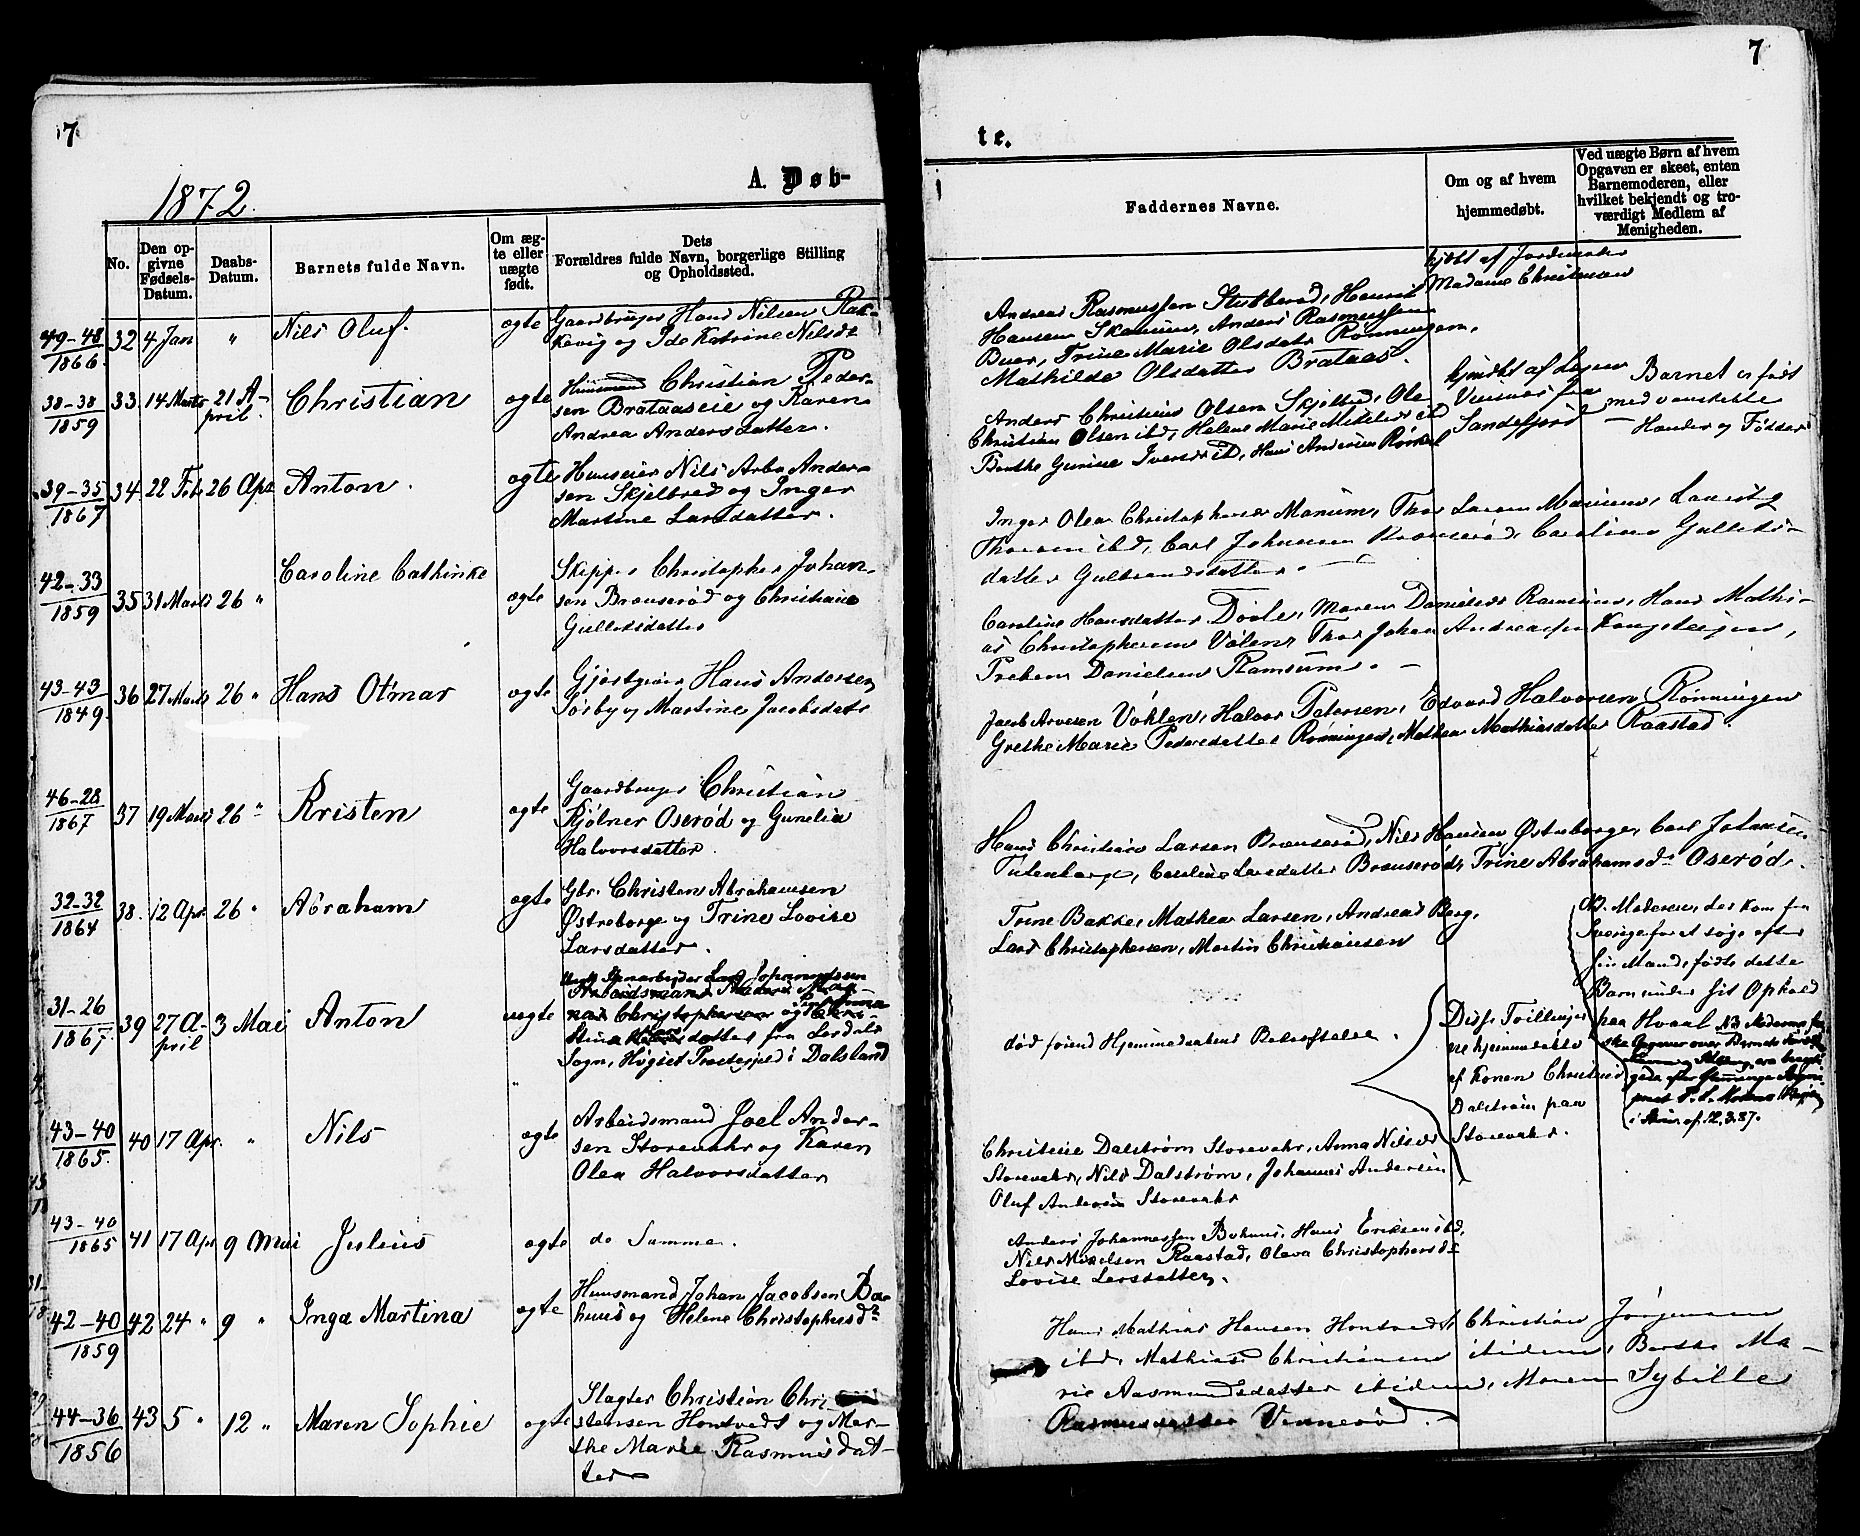 7
1872.
A. Døb-
No.
Den op-
givne
Fødsels-
Datum.
Daabs-
Datum.
Barnets fulde Navn.
Om æg-
te eller
uægte
født.
Dets
Forældres fulde Navn, borgerlige Stilling
og Opholdssted.
49-48
1866
32 4 Jan " Nils Oluf. ægte
Gaardbruger Hans Nilsen Rak-
kevig og Ide Katrine Nilsdt
38-38
1859
33 14 Marts 21 A-
pril. Christian ægte
Huusmand Christian Peder-
sen Brataaseie og Karen
Andrea Andersdatter.
39-35
1867
34 22 Feb 26 Apr Anton. ægte
Huuseier Nils Arbo Ander-
sen Skjelbred og Inger
Martine Larsdatter.
42-33
1859
35 31 Marts 26 " Caroline Cathinke ægte
Skipper Christopher Johan-
sen Bronserød og Christiane
Gullesdatter
43-43
1849.
36 27 Marts 26 " Hans Otmar ægte
Gjæstgiver Hans Andersen
Sørby og Martine Jacobsdatr
46-28
1867
37 19 Marts 26 " Kristen ægte
Gaardbruger Christian
Kjølner Oserød og Gunelia
Halvorsdatter.
32-32
1864
38. 12 Apr 26 " Abraham ægte
Gbr. Christen Abrahamsen
Østreborge og Trine Lovise
Larsdatter.
31-26
1867.
39 27 A-
pril 3 Mai Anton uægte
Arbeidsmand Anders Mag-
nus Christophersen og
Stina datter fra
Sogn, Høgsed Prestegjeld i Dalsland
43-40
1865.
40 17 Apr. " Nils ægte
Arbeidsmand Joel Ander-
sen Storevahr og Karen
Olea Halvorsdatter
43-40
1865
41 17 Apr 9 Mai Julius ægte
de Samme.
42-40
1859
42 24 " 9 " Inga Martina ægte
Huusmand Johan Jacobsen Bo-
huus og Helene Christophersdr
44-36
1856
43 5 " 12 " Maren Sophie ægte
Slagter Christian Chri-
stensen Hontvedt og Mar-
the Marie Rasmusdat-
ter
7
te.
Faddernes Navne.
Om og af hvem
hjemmedøbt.
Ved uægte Børn af hvem
Opgaven er skeet, enten
Barnemoderen, eller
hvilket bekjendt og tro-
værdigt Medlem af
Menigheden.
hjdbt af Jordemoder
Madame Christensen
Andreas Rasmussen Stubberød, Henrik
Hansen Skaauen, Anders Rasmussen
Buer, Trine Marie Olsdatr Rønningen,
Mathilde Olsdatter Brataas.
Anders Christian Olsen Skjelbred, Ole
Christian Olsen ibd, Helene Marie ibd
Berthe Gurine Iversdr ibd, Hans Andersen
hjmdbt af Lægen
fra
Sandefjord
Barnet er født
med vanskabte
Hænder og Fødder
Inger Olea Christophersdr Manum, Thor Larsen Manum, Lauritz
Thorsen ibd, Carl Johansen Bronserød, Caroline Gulleks-
datter Gulbrandsdatter.
Caroline Hansdatter Døvle, Maren Danielsdr Ramsum, Hans Mathi-
as Christophersen Vølen, Thor Johan Andreassen Kongsteigen,
Preben Danielsen Ramsum.
Jacob Arvesen Vøklen, Halvor Petersen, Edvard Halvorsen Rønningen
Grethe Marie Pedersdatter Rønningen, Mathea Mathiasdatter Raastad.
Hans Christian Larsen Bronserød, Nils Hansen Østreborge, Carl Johansen
Tutenborge, Caroline Larsdatter Bronserød, Trine Abrahamsdr Oserød.
Trine Bakke, Mathea Larsen, Andreas Berg,
Lars Christophersen, Martin Christiansen
død foiend Hjemmedaabens Bekræftelse.
Disse Tvillinger
ere hjemmedøbte
af Konen Christine
Dalstrøm paa
Storevahr.
Obs. Moderen, der kom fra
Sverige for at søge efter
sin Mand, fødte dette
Barn under sit Ophold
paa Hvaal NB Moderens
i Skien af 12.3.87.
Christine Dalstrøm Storevahr, Anna Nilsdr
Storevahr, Nils Dalstrøm, Johannes Andersen
Oluf Andersen Storevahr
Anders Johannessen Bohuus, Hans Eriksen ibd,
Nils Mikelsen Raastad, Olava Christophersdr
Lovise Larsdatter.
Hans Mathias Hansen Hontvedt, Christian Jørgensen
ibd, Mathias Christiansen ibidem, Berthe Ma-
rie Aasmundsdatter ibidem, Maren Sybille
Rasmusdatter Vennerød.